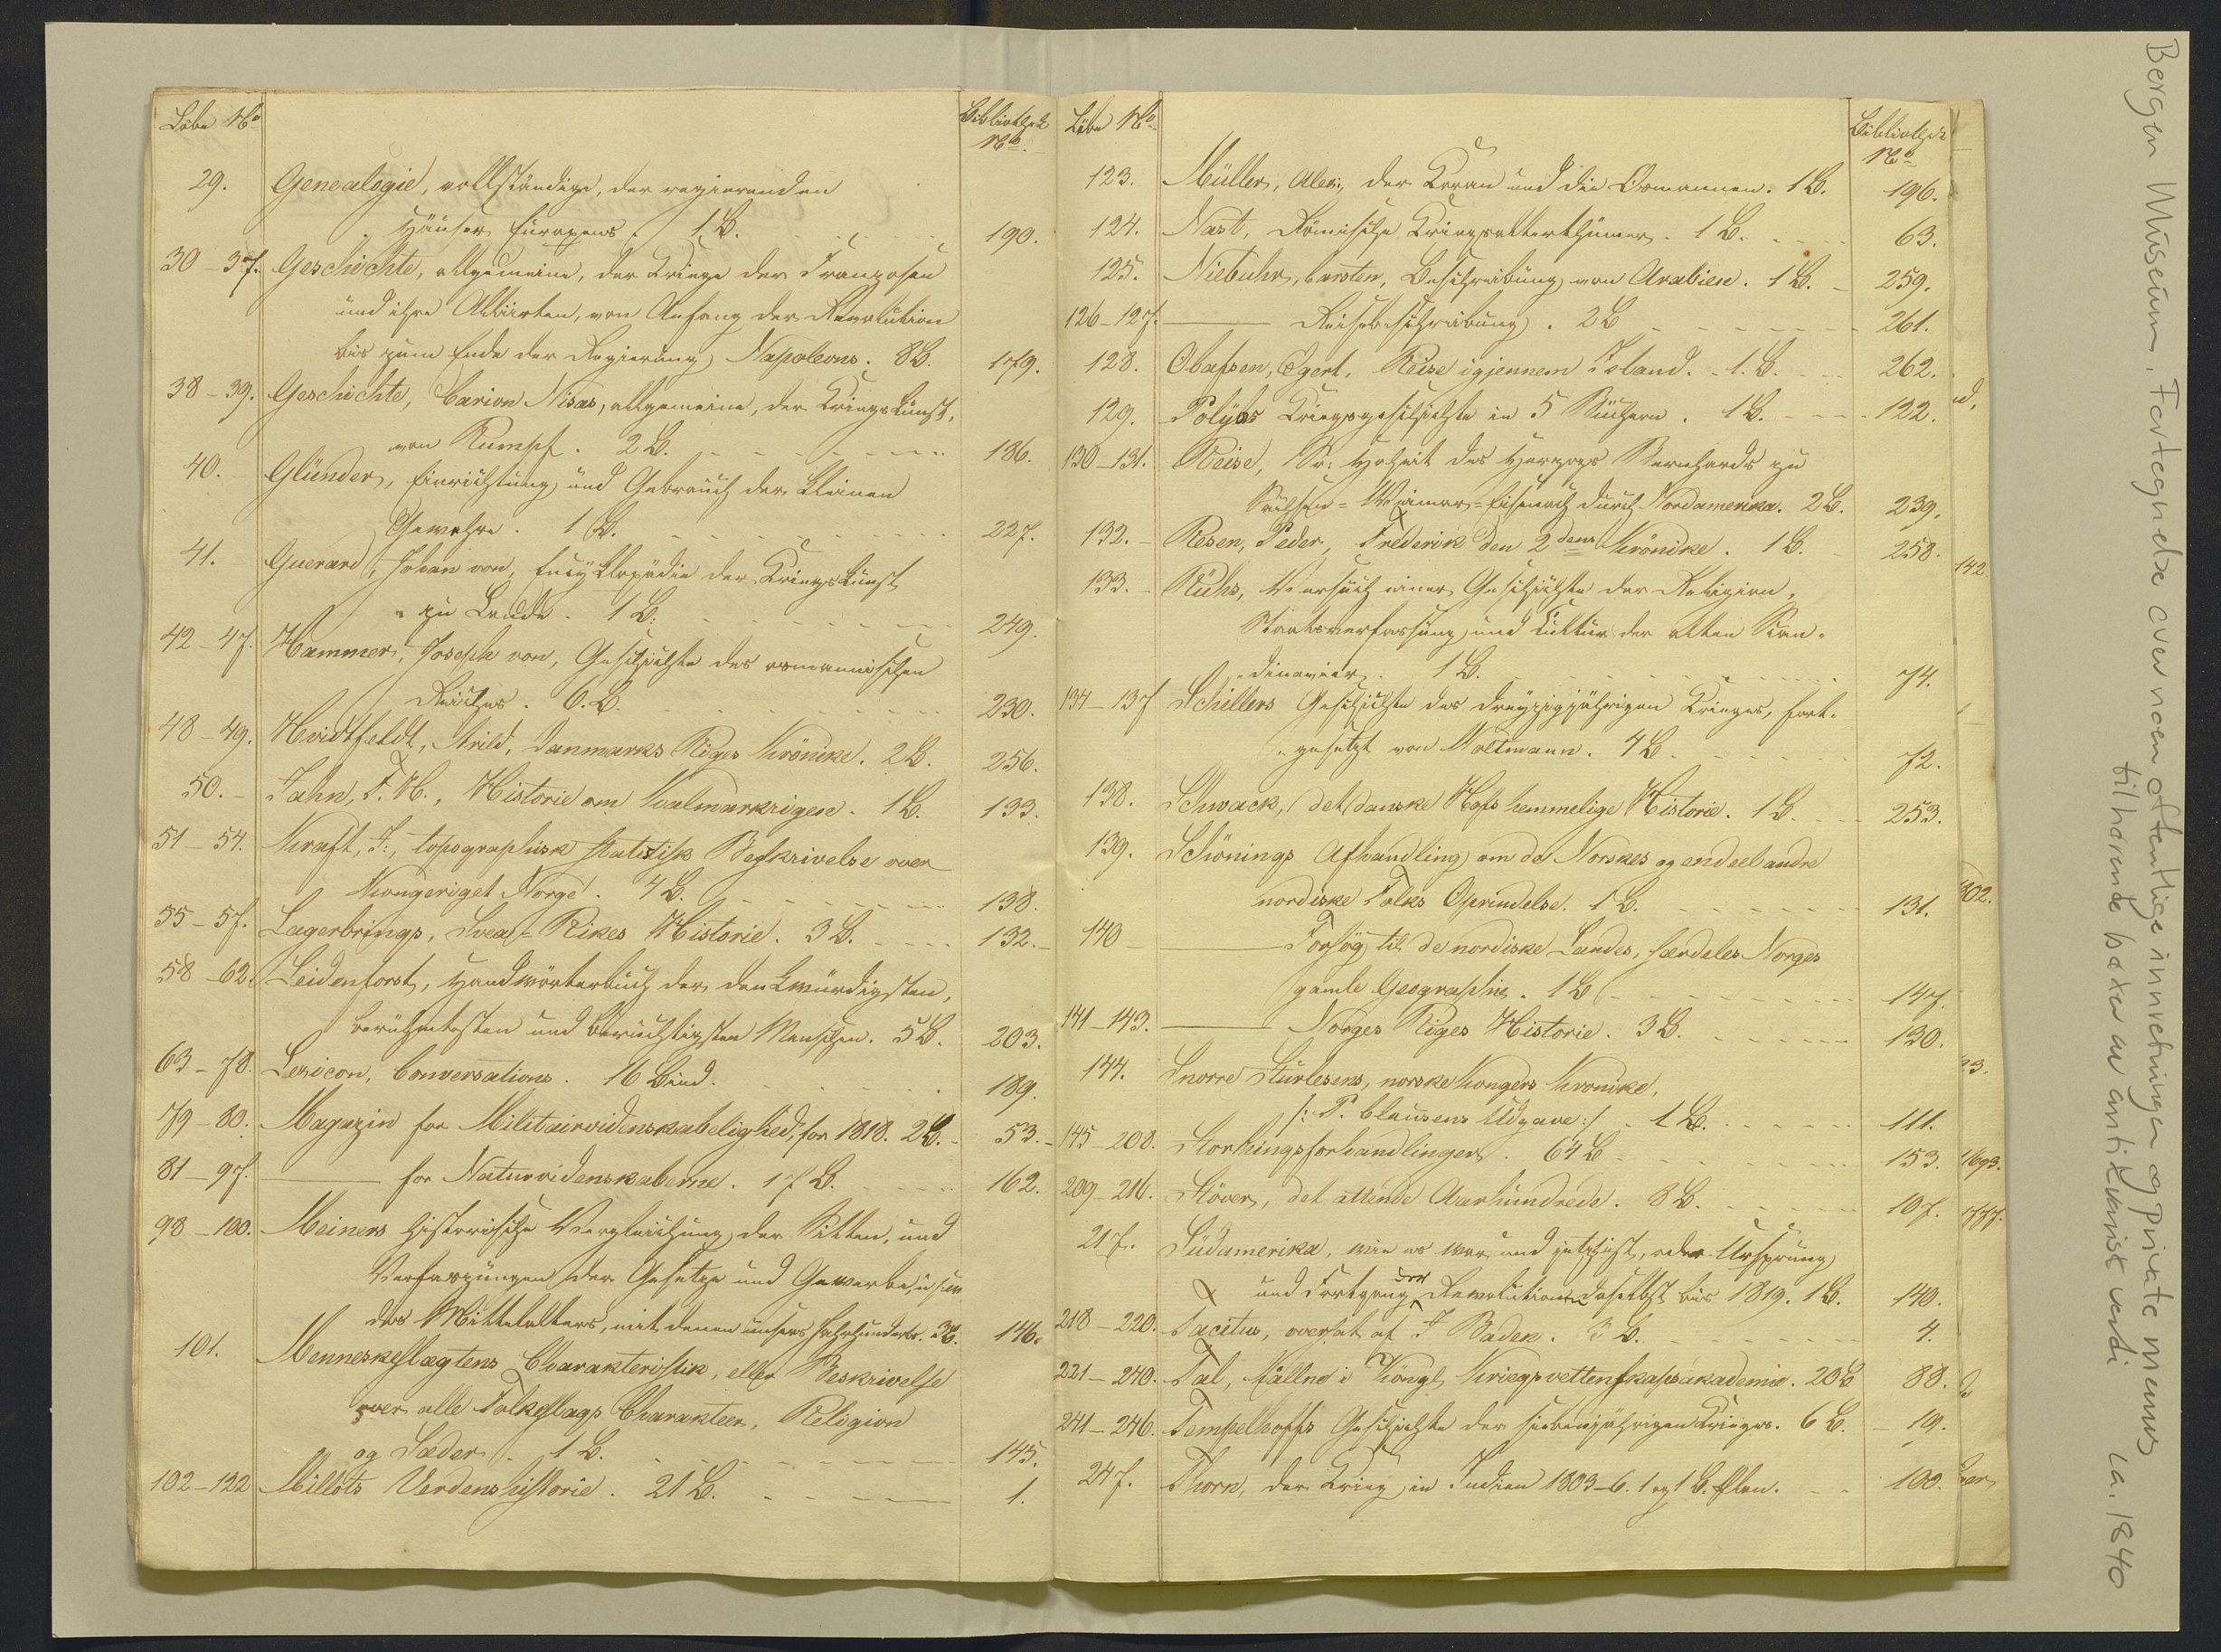 Löbe No
Bibliothek
No
29. Genealogie, vollständige, der regierenden
Häuser Europens. 1 B. 190.
30-37. Geschichte, allgemeine, der Kriege der Franzosen
und ihre Alliirten, von Anfang der Revolution
bis zum Ende der Regierung Napoleons. 8 B. 179.
38-39. Geschichte, Carion Nisas, allgemeine, der Kriegskunst,
von Rumpf. 2 B. 186.
40. Glünder, Einrichtung und Gebrauch der kleinen
Gewehre. 1 B. 227.
41. Guerard, Johan von, Encyklopädie der Kriegskunst
zu Lande. 1 B. 249.
42-47. Hammer, Joseph von, Geschichte des osmanischen
Reiches. 6. B. 230.
48-49. Hvidtfeldt, Arild, Danmarks Riges Krönike. 2 B. 256.
50. Jahn, F. H., Historie om Kalmarkrigen. 1 B. 133.
51-54. Kraft, J:, topographisk statistisk Beskrivelse over
Kongeriget Norge. 4 B. 138.
55-57. Lagerbrings, Svea-Rikes Historie. 3 B. 132.
58-62. Leidenforst, Handwörterbuch der denkwürdigsten,
berühmtesten und berüchtigsten Menschen. 5 B. 203.
63-78. Lexicon, Conversations. 16 Bind. 189.
79-80. Magazin for Militairvidenskabelighed, for 1818. 2 B. 53.
81-97. ——— for Naturvidenskaberne. 17 B. 162.
98-100. Meiners historische Vergleichung der Sitten, und
Verfassungen der Gesetze und Gewerbe,
des Mittelalters, mit denen unsers Jahrhunderts. 3 B. 146.
101. Menneskeslægtens Charakteristik, eller Beskrivelse
over alle Folkeslags Charakteer, Religion
og Sæder. 1 B. 145.
102-122 Millots Verdenshistorie. 21 B. 1.
Löbe No
Bibliothek
No
123. Müller, Alex:, der Koran und die Osmannen. 1 B. 196.
124. Nast, Römische Kriegsalterthümer. 1 B. 63.
125. Niebuhr, Carsten, Beschreibung von Arabien. 1 B. 259.
126-127. ——— Reisebeschreibung. 2 B 261.
128. Olafsen, Egert, Reise igjennem Island. 1. B. 262.
129. Polybs Kriegsgeschichte in 5 Büchern. 1 B. 122.
130-131. Reise, Sr: Hoheit des Herzogs Bernhards zu
Sachsen-Weimar-Eisenach durch Nordamerika. 2 B. 239.
132. Resen, Peder, Frederik den 2dens Krönike. 1 B. 258.
133. Rühs, Versuch einer Geschichte der Religion,
Staatsverfassung und Kultur der alten Skan-
dinavier. 1 B. 74.
134-137 Schillers Geschichte des dreyzigjährigen Krieges, fort-
gesetzt von Woltmann. 4 B. 72.
138. Schwack, det danske Hofs hemmelige Historie. 1 B. 253.
139. Schönings Afhandling om de Norskes og endeel andre
nordiske Folks Oprindelse. 1 B. 131.
140 ——— Forsög til de nordiske Landes, særdeles Norges
gamle Geographie. 1 B 147.
141-143. ——— Norges Riges Historie. 3 B. 130.
144. Snorre Sturlesens, norske Kongers Kronike,
/: P. Clausens Udgave :/ . 1 B. 111.
145-208. Storthingsforhandlinger. 64 B 153.
209-216. Stöver, det attende Aarhundrede. 8 B. 107.
217. Südamerika, wie es war und jetzt ist, oder Ursprung
und Fortgang der Revolution daselbst bis 1819. 1 B. 140.
218-220. Tacitus, oversat af J Baden. 3 B. 4.
221-240. Tal, hållne i Kongl. Kriegsvettenskapsakademie. 20 B 88.
241-246. Tempelhoffs Geschichte des siebenjährigen Krieges. 6 B. 19.
247. Thorn, der Krieg in Indien 1803-6. 1 og 1 B. Plan. 100.
d.
142.
302.
23.
1693.
777.
Bergen Museum. Fortegnelse over noen offentlige innretninger og private menns
tilhørende bøker av antikvarisk verdi ca. 1840